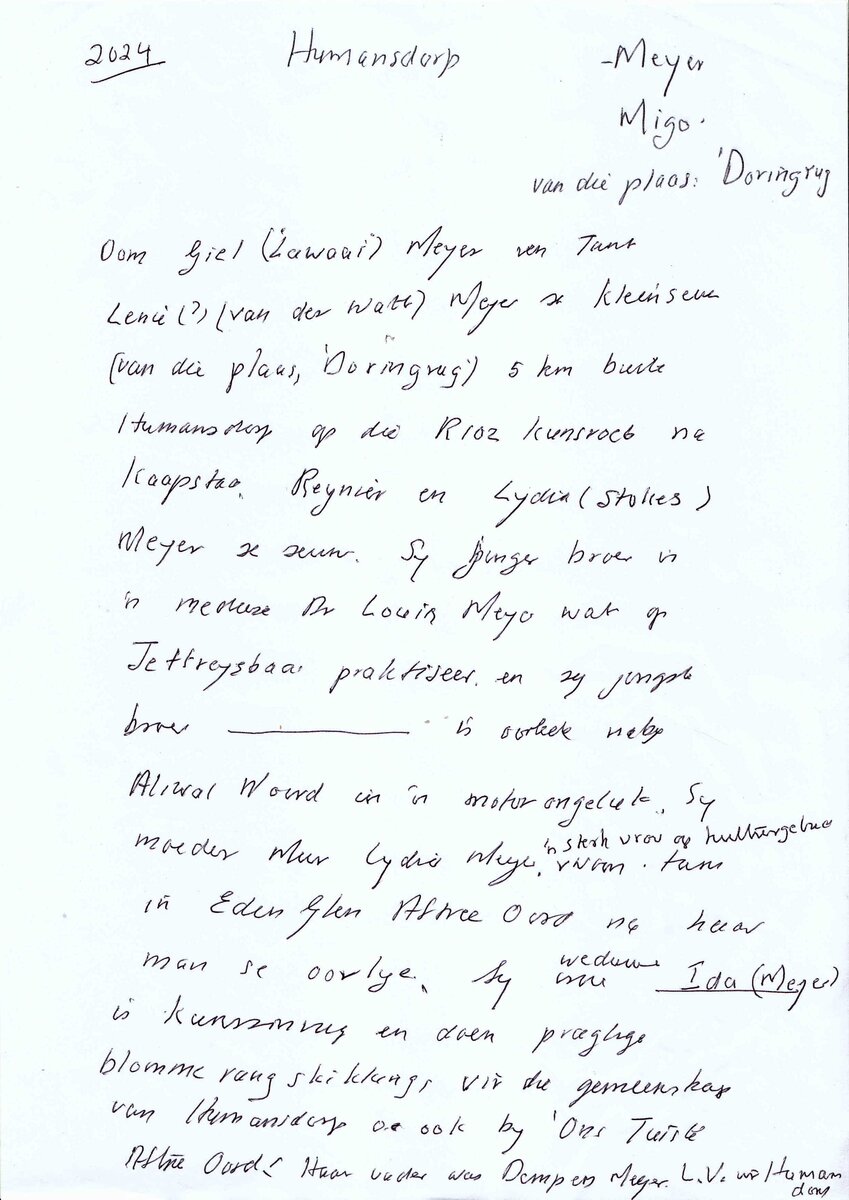 2024 Humansdorp - Meyer
Migo.
van die plaas: 'Doringrug
Oom Giel ("Lawaai") Meyer en Tant
Lenie (?) (van der Watt) Meyer se kleinseun
(van die plaas, 'Doringrug') 5 km buite
Humansdorp op die R102 na
Kaapstad. Reynier en Lydia (Stokes)
Meyer se seun. Sy jonger broer is
'n Dr Louis Meyer wat op
Jeffreysbaai praktiseer. en sy jongste
broer is oorlede naby
Aliwal Noord in 'n motorongeluk. Sy
'n sterk vrou op kultuurgebied
moeder Mev Lydia Meyer, woon tans
in Eden Glen Aftree Oord na haar
man se oorlye. Sy
weduwee Ida (Meyer)
is kunssinnig en doen pragtige
blomme rangskikkings vir die gemeenskap
van Humansdorp ook by 'Ons Tuiste
Aftree Oord! Haar vader was Dampers Meyer. L.V. vir Humansdorp